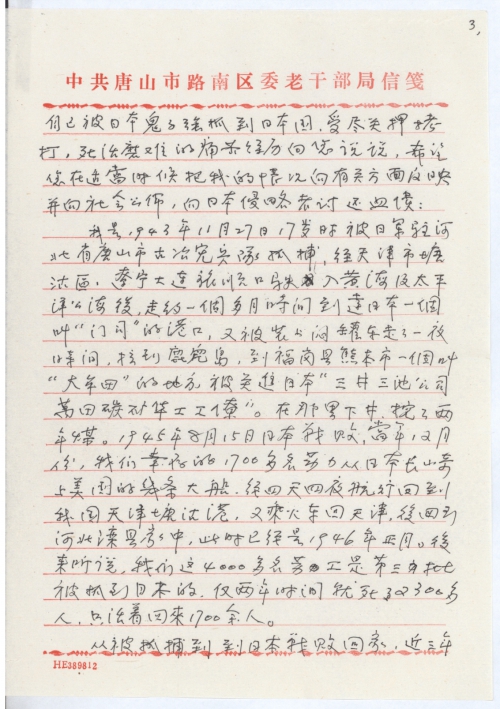 3,
中共唐山市路南区委老干部局信笺
自己被日本鬼子强抓到日本国,受尽关押拷
打,死活磨难的痛苦经历向您说说,希望
您在适当时候把我的情况向有关方面反映
并向社会公佈,向日本侵略者讨还血债:
我是,1943年11月27日17岁时被日军驻河
北省唐山市古冶宪兵队抓捕,经天津市塘
沽区,辽宁大连旅顺口 入黄海及太平
洋公海後,走约一個多月時间到達日本一個
叫“门司”的港口,又被装入闷罐车走了一夜
時间,拉到鹿児島,到福岡县熊本市一個叫
“大牟田”的地方被关進日本“三井三池公司
萬田碳矿华工工僚”。在那里下井,挖了两
年煤。1945年8月15日日本戰敗,當年12月
份,我们幸存的1700多名劳力从日本长山奇
上美国的 大船,经四天四夜航行回到
我國天津塘沽港,又乘火车回天津,後回到
河北滦县家中,此時已经是1946年正月。後
来听说,我们这4000多名劳工是第三批
被抓到日本的,仅两年时间就死了2300多
人,只活着回来1700余人。
从被抓捕到到日本戰敗回家,近三年
HE389812